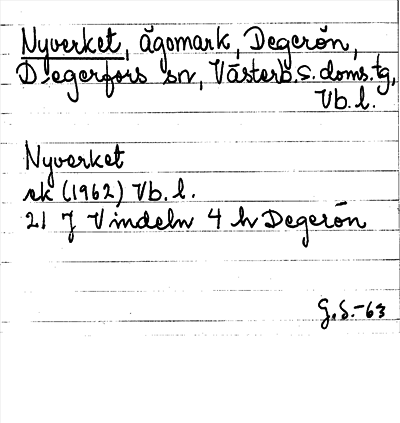 Nyverket, ägomark, Degerön,
Degerfors sn, Västerb. s. doms.tg,
Vb. l.
Nyverket
ek (1962) Vb. l.
21 J Vindeln 4 h Degerön
G.S.-63